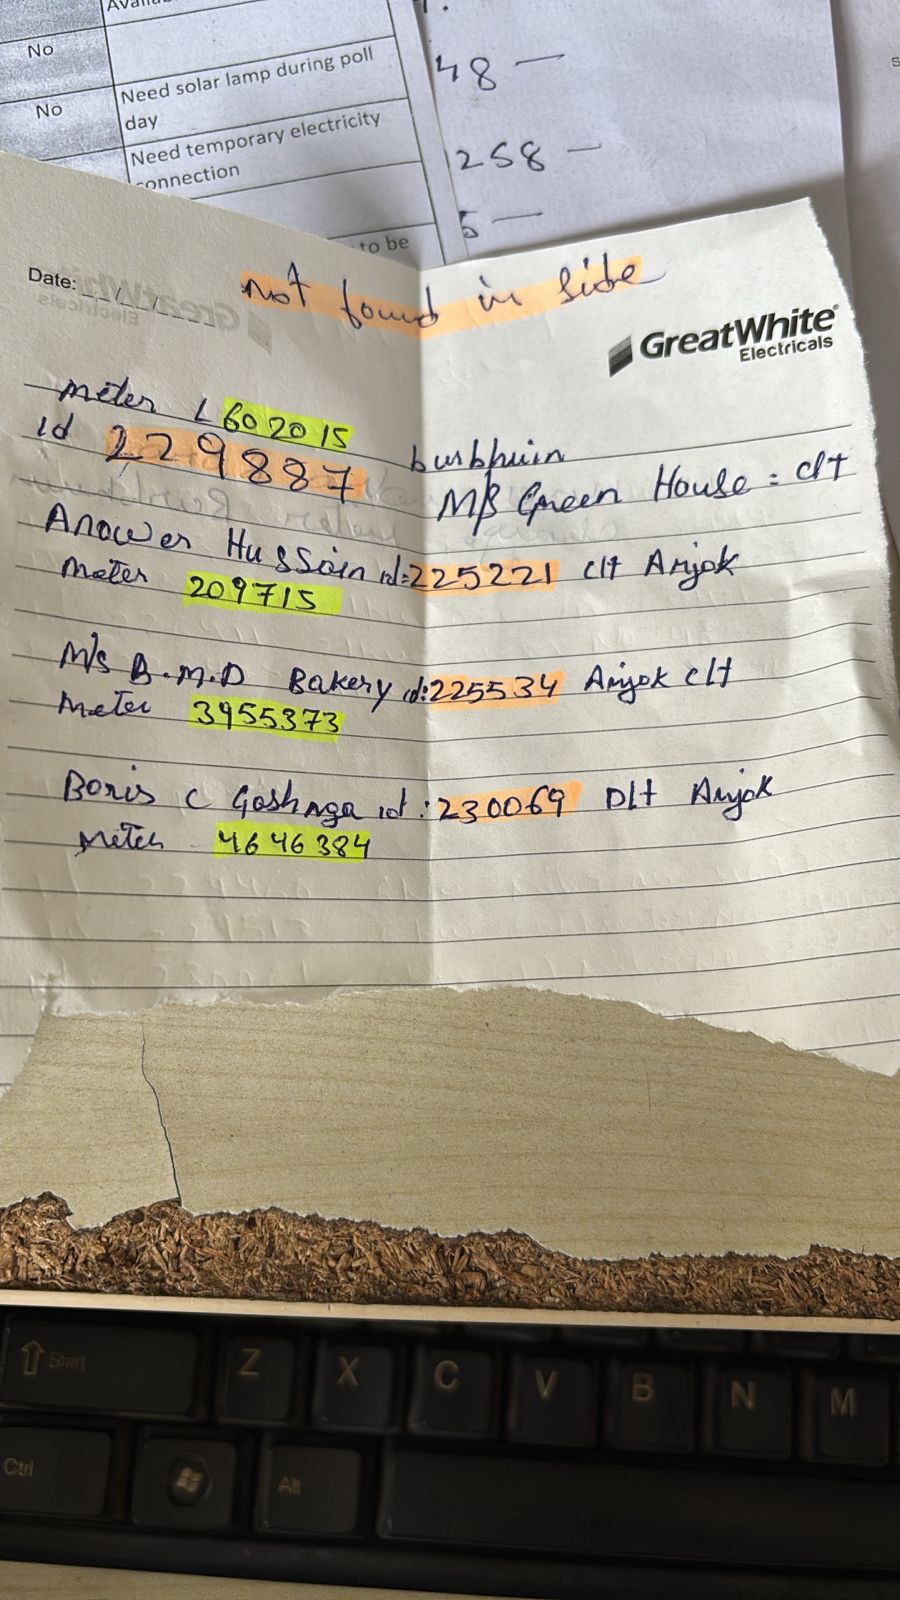 No
Need solar lamp during poll
day
No
Need temporary electricity
connection
to be
48 —
258 —
5 —
Date:
not found in side
GreatWhite
Electricals
meter L602015
id 229887 burbhuin
M/S Green House = clt
Anower Hussain id:225221 clt Anjok
meter 209715
M/s B.M.D Bakery id:225534 Anjok clt
meter 3955373
Boris C Gashnga id:230069 Dlt Anjok
meter 4646384
Z X C V B N M
Ctrl
Alt